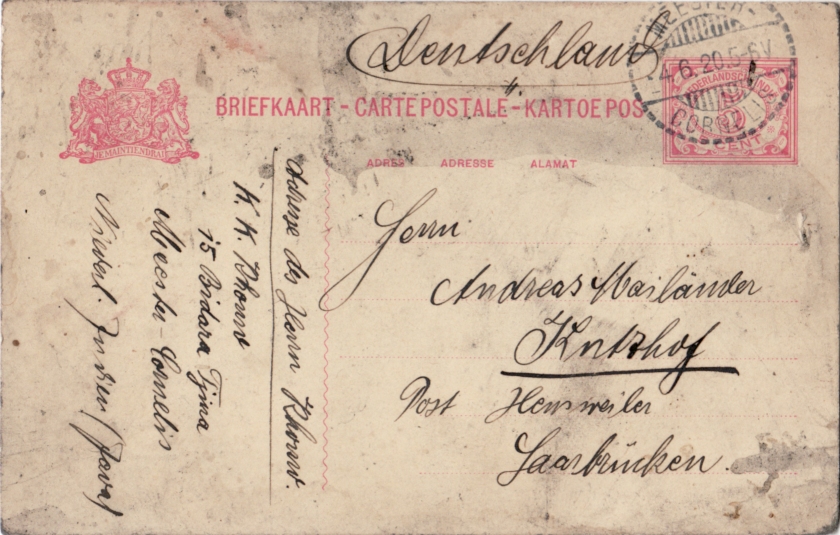 Deutschland
MEESTER-
4.6.20.5-6V
CORNELIS
NEDERLANDSCH-INDIE
CENT
JE MAINTIENDRAI
BRIEFKAART - CARTE POSTALE - KARTOE POS
ADRES ADRESSE ALAMAT
Herrn
Andreas Mailänder
Kutzhof
Post Heusweiler
Saarbrücken.
Adresse des Herrn Khouw.
K. K. Khouw
15 Bidara Tjina
Meester-Cornelis
Niederl. Indien (Java)